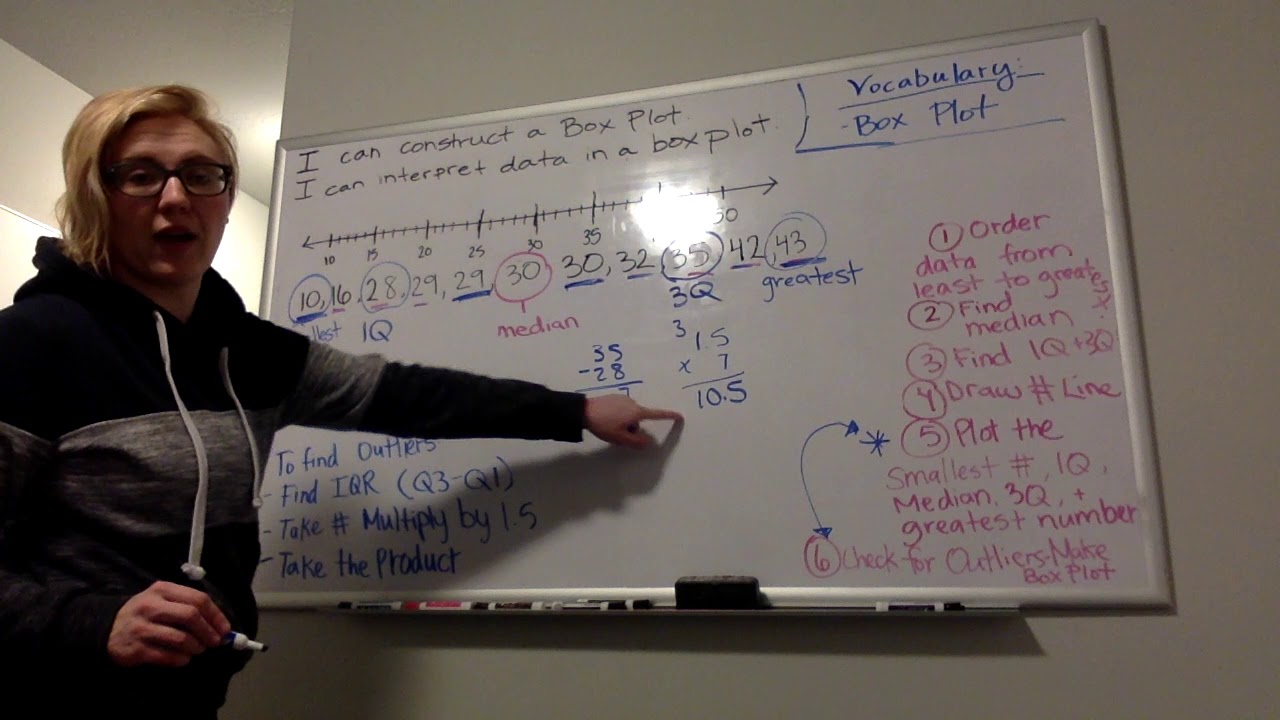 Vocabulary:
- Box Plot
I can construct a Box Plot.
I can interpret data in a box plot.
10 15 20 25 30 35 50
10, 16, 28, 29, 29, 30 30, 32, 35, 42, 43
1Q median 3Q greatest
35
- 28
7
3
1.5
x 7
10.5
To find Outliers
- Find IQR (Q3-Q1)
- Take # Multiply by 1.5
- Take the Product
1 Order
data from
least to greatest
2 Find
median
3 Find 1Q + 3Q
4 Draw # Line
* 5 Plot the
Smallest #, 1Q,
Median, 3Q, +
greatest number
6 Check for Outliers-Make
Box Plot